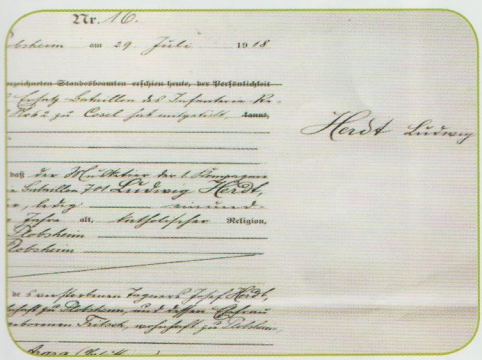 Nr. 16.
lobsheim am 29 Juli 1918
unzeichneten Standesbeamten erschien heute, der Persönlichkeit
Ersatz-Bataillon des Infanterie Re-
zu Cosel hat mitgeteilt kannt,
Herdt Ludwig
daß der Musketier der 1. Kompagnie
Bataillon 701 Ludwig Herdt,
ledig einund-
Jahre alt, katholischer Religion,
Plobsheim
Plobsheim
des verstorbenen Tagners Josef Herdt,
zu Plobsheim, und dessen Ehefrau
geborenen Fritsch, wohnhaft zu